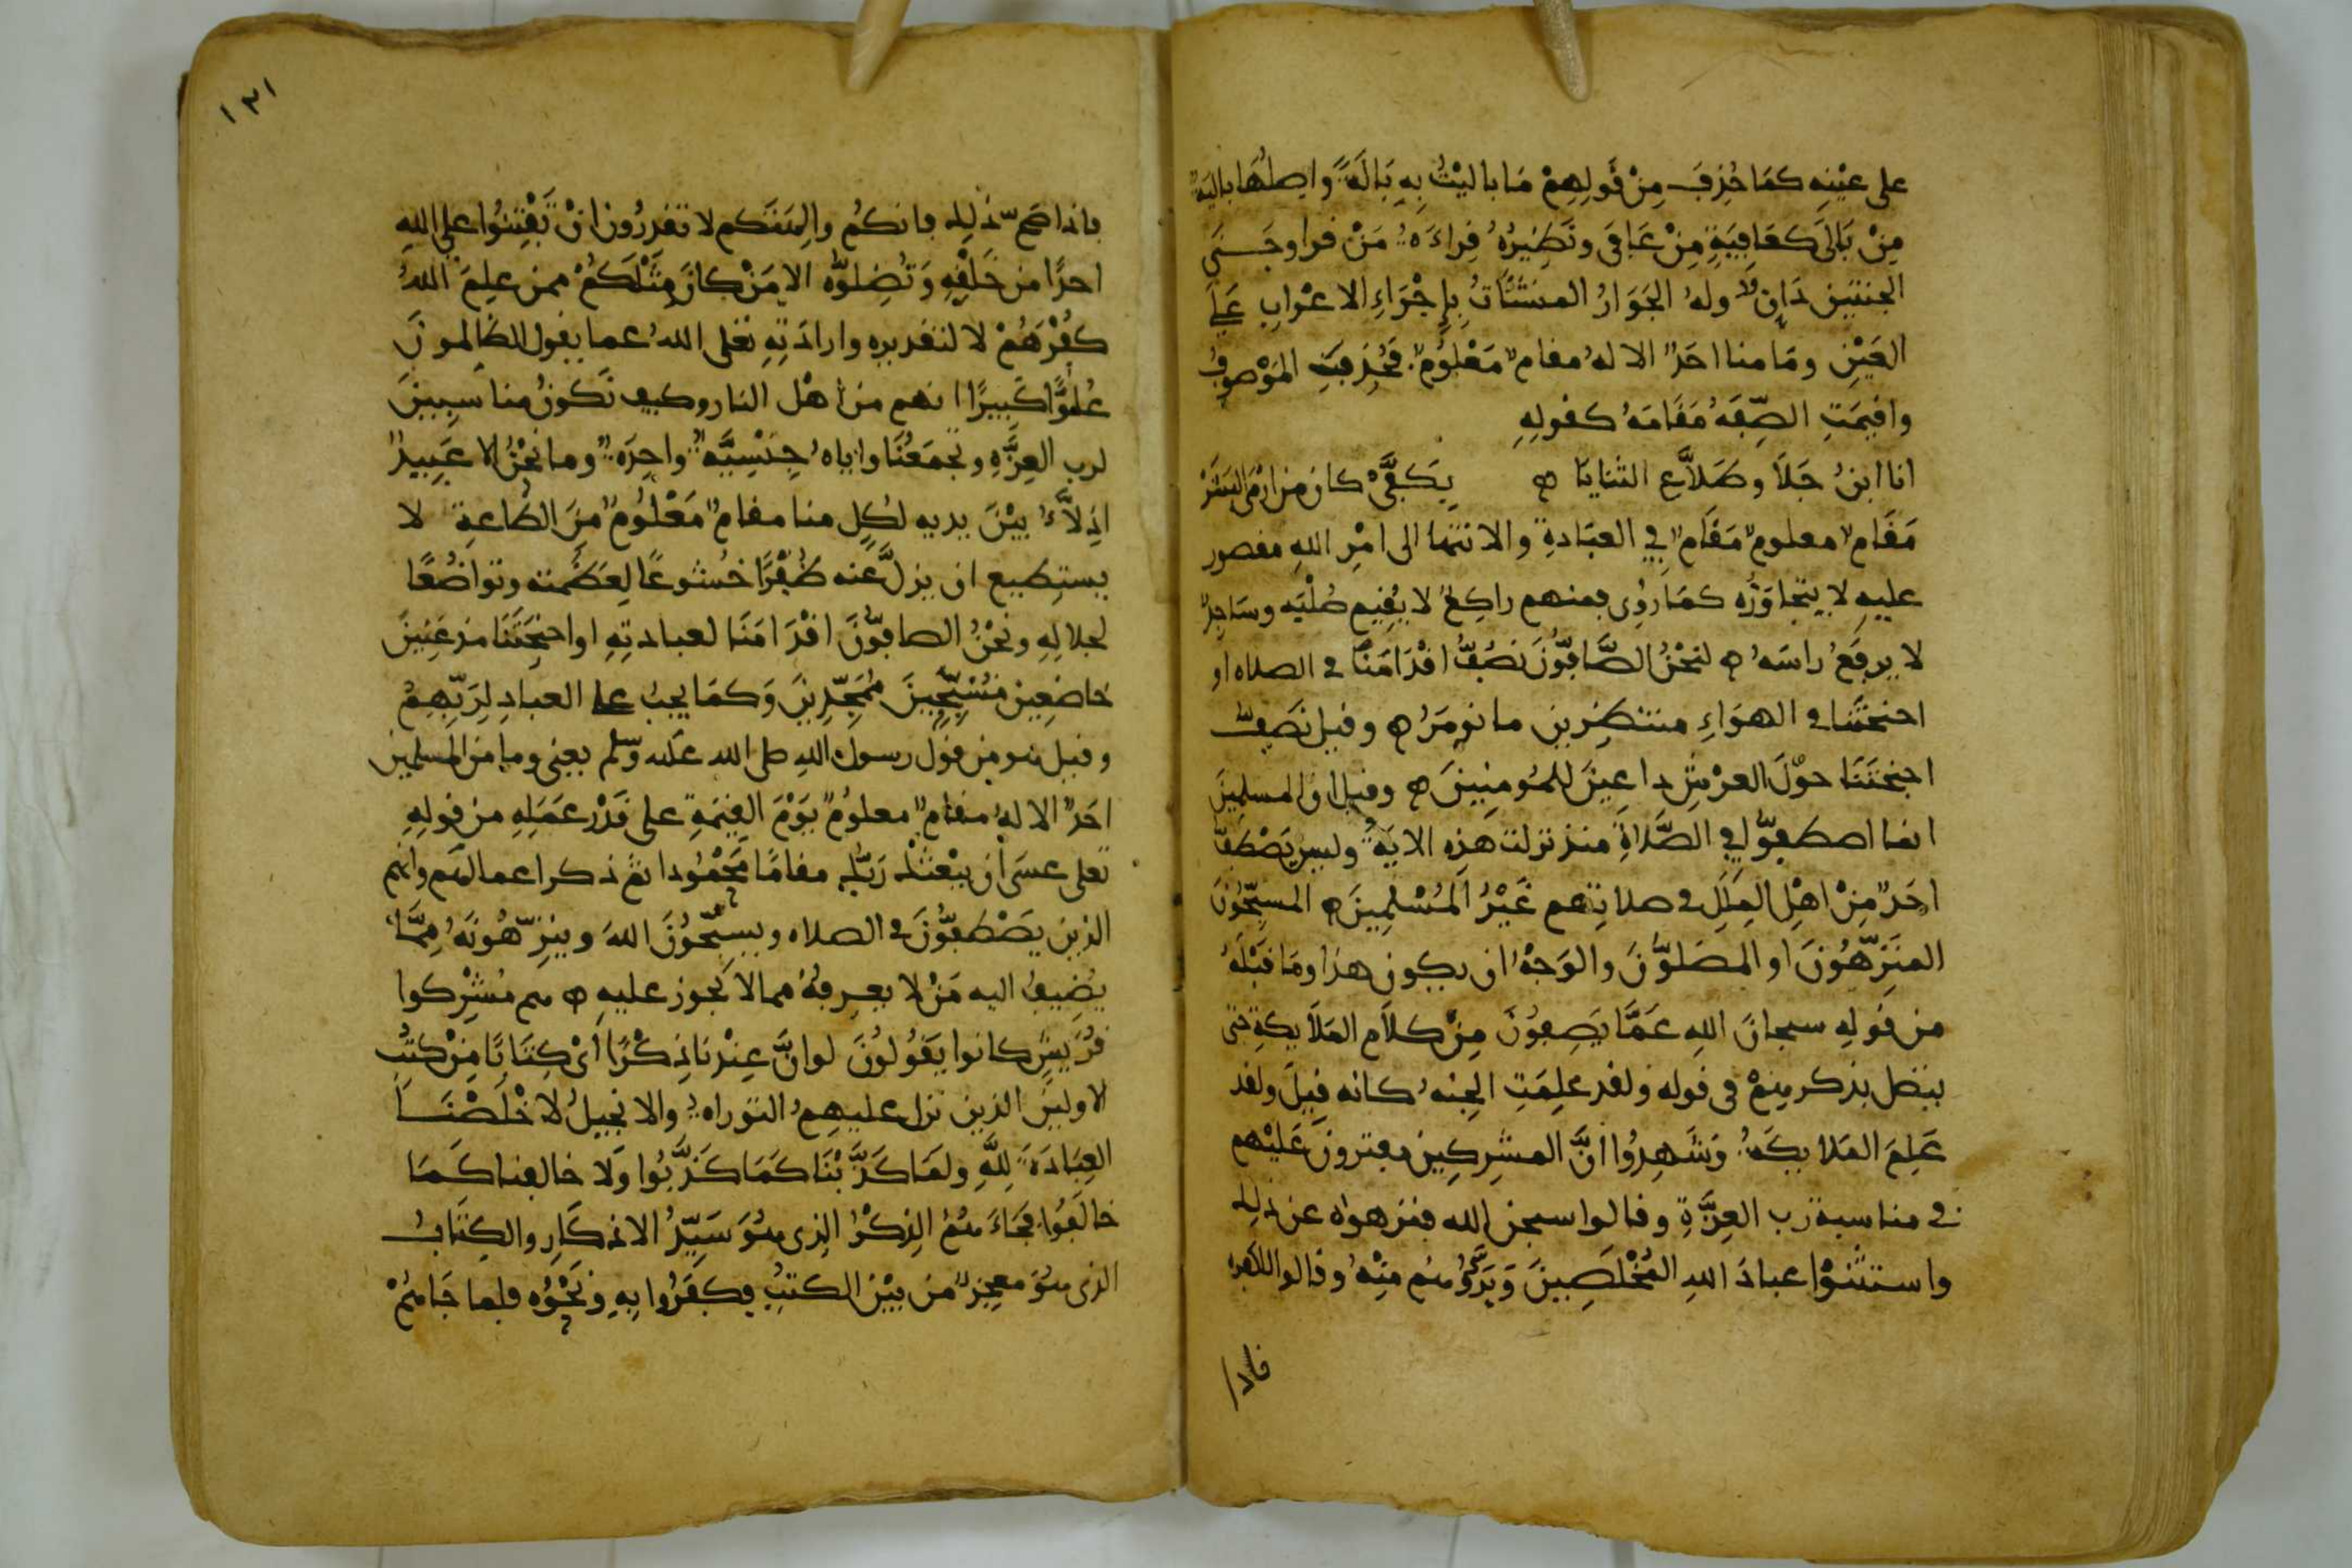 على عينه كما حذف من قولهم ما باليت به بالة واصلها بالية
من بالى كعافية من عافى ونظيره قراءة من قرا وجنى
الجنتين دان وله الجوار المنشئات بإجراء الاعراب على
العين وما منا احد الا له مقام معلوم فحذف الموصوف
واقيمت الصفة مقامه كقوله
انا ابن جلا وطلاع الثنايا ه بكفى كان من ارمى البشر
مقام معلوم مقام في العبادة والانتها الى امر الله مقصور
عليه لا يتجاوزه كما روى فمنهم راكع لا يقيم صلبه وساجد
لا يرفع راسه ه لنحن الصافون نصف اقدامنا في الصلاه او
اجنحتنا في الهواء منتظرين ما نومر ه وقيل نصف
اجنحتنا حول العرش داعين للمومنين ه وقيل ان المسلمين
انما اصطفوا في الصلاة منذ نزلت هذه الاية وليس يصطف
احد من اهل الملل في صلاتهم غير المسلمين ه المسبحون
المنزهون او المصلون والوجه ان يكون هذا وما قبله
من قوله سبحان الله عما يصفون من كلام الملايكة حتى
يتصل بذكرهم في قوله ولقد علمت الجنه كانه قيل ولقد
علم الملايكة وشهدوا ان المشركين مفترون عليهم
في مناسبة رب العزة وقالوا سبحن الله فنزهوه عن ذلك
واستثنوا عباد الله المخلصين وبرؤهم منه وقالوا للكفرة
فاذا
١٣١
فاذا صح ذلك فانكم والهتكم لا تقدرون ان تفتنوا على الله
احدا من خلقه وتضلوه الا من كان مثلكم ممن علم الله
كفرهم لا لتقديره وارادته تعلى الله عما يقول الظالمون
علوا كبيرا انهم من اهل النار وكيف نكون مناسبين
لرب العزة وتجمعنا واياه جنسية واحدة وما نحن الا عبيد
اذلاء بين يديه لكل منا مقام معلوم من الطاعة لا
يستطيع ان يزل عنه ظفرا خشوعا لعظمته وتواضعا
لجلاله ونحن الصافون اقدامنا لعبادته او اجنحتنا مذعنين
خاضعين مسبحين ممجدين وكما يجب على العباد لربهم
وقيل هو من قول رسول الله صلى الله عليه وسلم يعني وما من المسلمين
احد الا له مقام معلوم يوم القيمة على قدر عمله من قوله
تعلى عسى ان يبعثك ربك مقاما محمودا ثم ذكر اعمالهم وانهم
الذين يصطفون في الصلاه ويسبحون الله وينزهونه مما
يضيف اليه من لا يعرفه مما لا يجوز عليه ه هم مشركوا
قريش كانوا يقولون لو ان عندنا ذكرا اى كتابا من كتب
الاولين الذين نزل عليهم التوراه والانجيل لاخلصنا
العبادة لله ولما كذبنا كما كذبوا ولا خالفنا كما
خالفوا فجاءهم الذكر الذى هو سيد الاذكار والكتاب
الذى هو معجز من بين الكتب فكفروا به ونحوه فلما جاهم